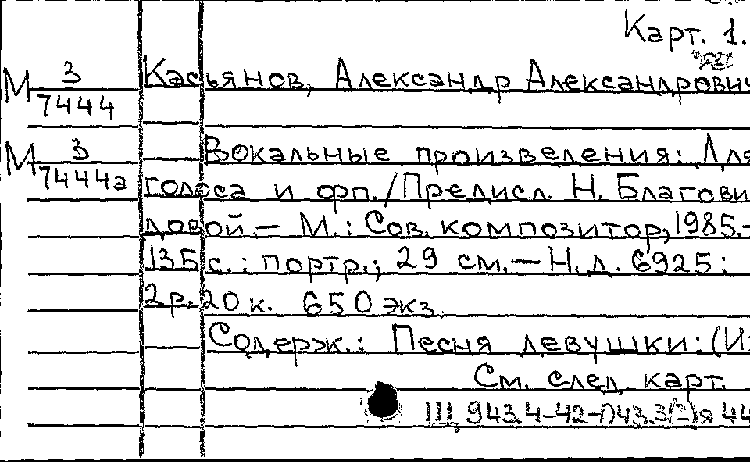 Карт. 1.
М 3/7444 Касьянов, Александр Александрович
М 3/7444а Вокальные произведения: Для
голоса и фп./Предисл. Н. Благови-
довой.— М.: Сов. композитор, 1985.—
135 с.: портр.; 29 см.— Н.д. 6925:
2р.20к. 650 экз.
Содерж.: Песня девушки: (Из
См. след. карт.